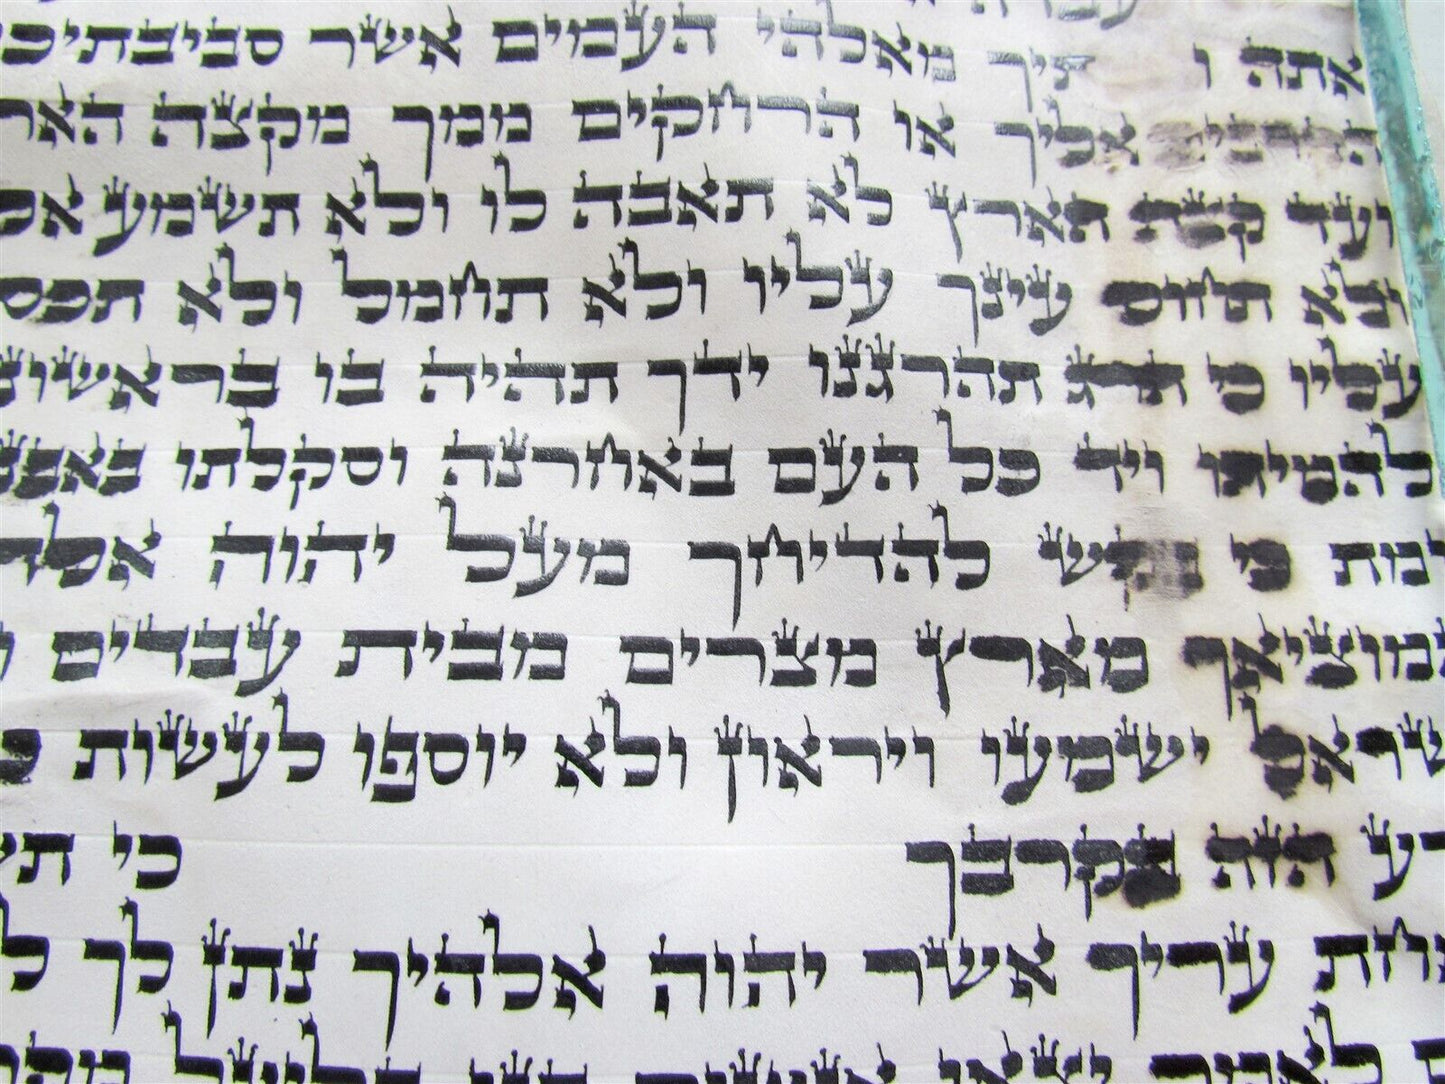 אתה ו תיך מאלהי העמים אשר סביבתיכ
אליך או הרחקים ממך מקצה האר
ועד קצה הארץ לא תאבה לו ולא תשמע אל
ולא תחוס עינך עליו ולא תחמל ולא תכס
עליו כי הרג תהרגנו ידך תהיה בו בראשונ
להמיתו ויד כל העם באחרנה וסקלתו באבנ
ומת כי להדיחך מעל יהוה אלה
המוציאך מארץ מצרים מבית עבדים ו
שראל ישמעו ויראון ולא יוספו לעשות כ
רע הזה בקרבך כי תש
אחת עריך אשר יהוה אלהיך נתן לך ל